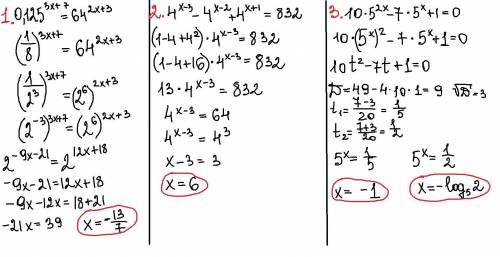 1. 0,125^{3x+7} = 64^{2x+3}
(1/8)^{3x+7} = 64^{2x+3}
(1/2^3)^{3x+7} = (2^6)^{2x+3}
(2^{-3})^{3x+7} = (2^6)^{2x+3}
2^{-9x-21} = 2^{12x+18}
-9x-21=12x+18
-9x-12x=18+21
-21x=39 x=-13/7
2. 4^{x-3} - 4^{x-2} + 4^{x+1} = 832
(1-4+4^2)·4^{x-3} = 832
(1-4+16)·4^{x-3} = 832
13·4^{x-3} = 832
4^{x-3} = 64
4^{x-3} = 4^3
x-3 = 3
x=6
3. 10·5^{2x} - 7·5^x + 1 = 0
10·(5^x)^2 - 7·5^x + 1 = 0
10t^2 - 7t + 1 = 0
D = 49 - 4·10·1 = 9 √D = 3
t_1 = 7-3/20 = 1/5
t_2 = 7+3/20 = 1/2
5^x = 1/5 5^x = 1/2
x = -1 x = -log_5 2